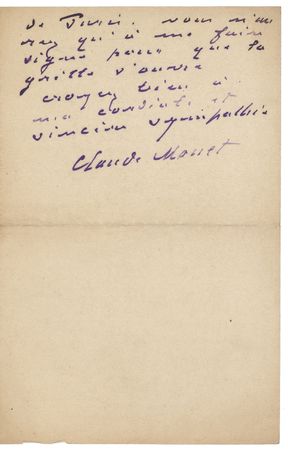 de Paris. vous n'au
rez qu'à me faire
signe pour que la
grille s'ouvre
croyez bien à
ma cordiale et
sincère sympathie
Claude Monet